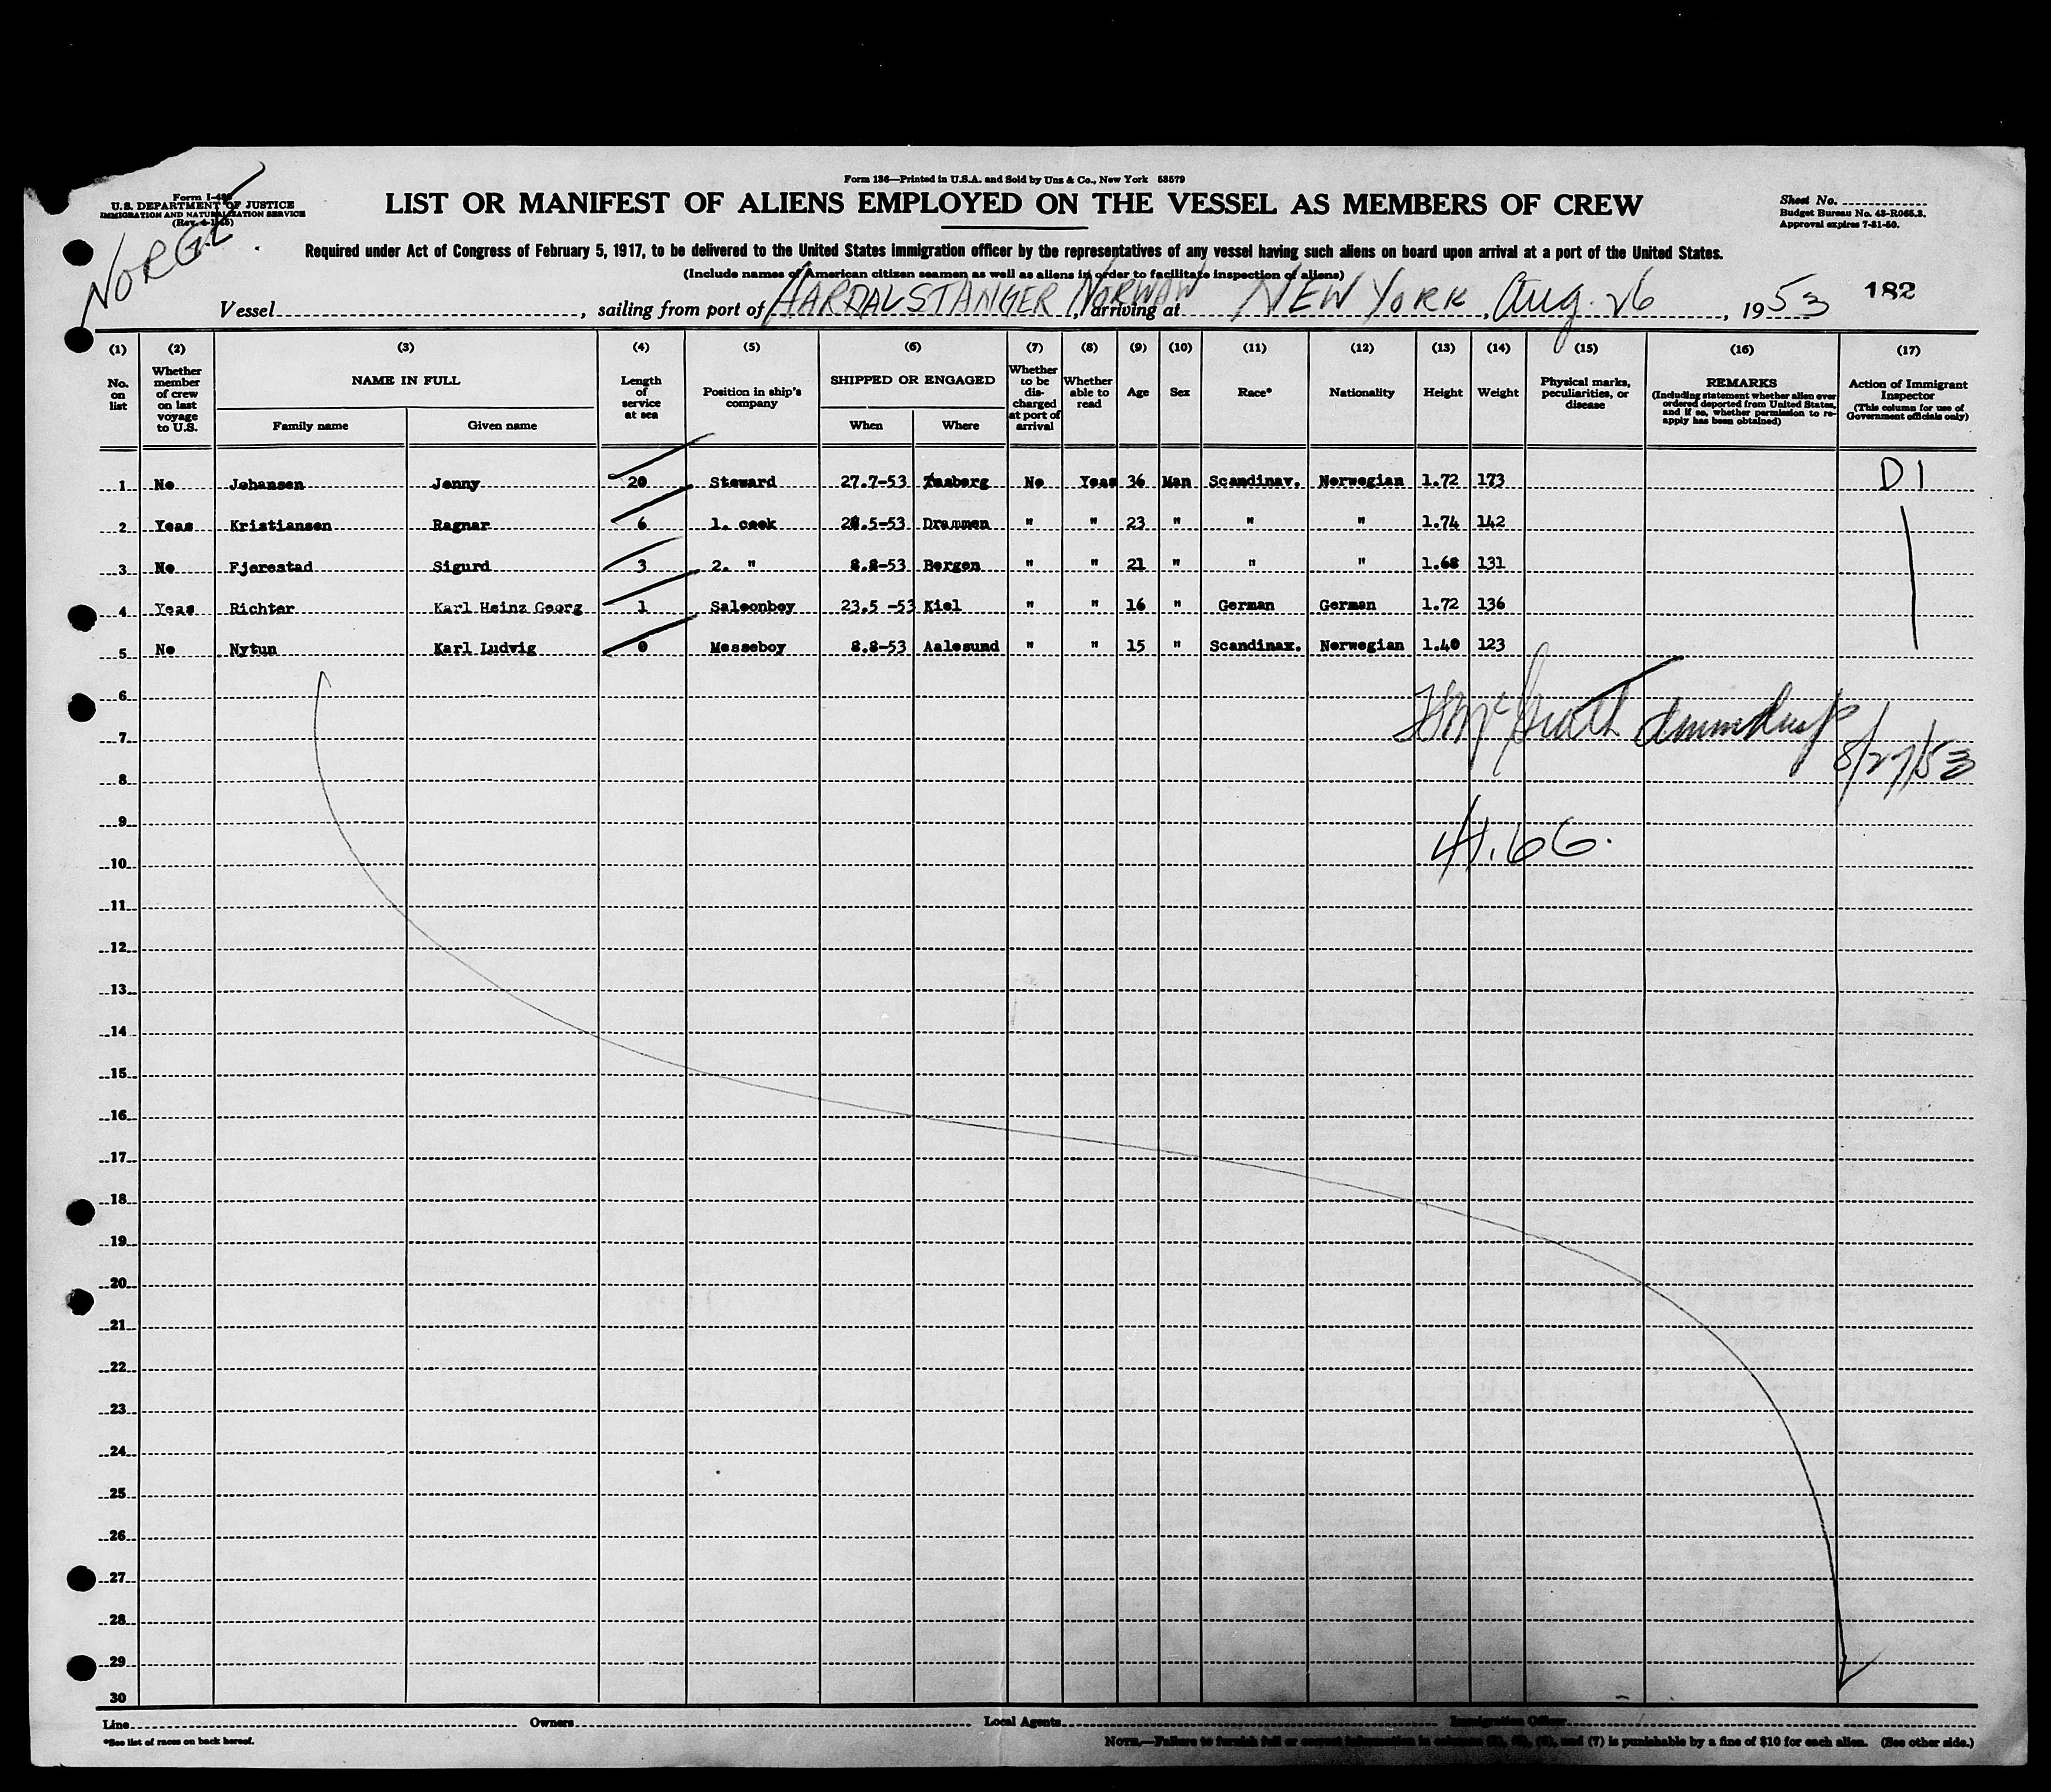 Form 136—Printed in U.S.A. and Sold by Unz & Co., New York 53579
U.S. DEPARTMENT OF JUSTICE
IMMIGRATION AND NATURALIZATION SERVICE
LIST OR MANIFEST OF ALIENS EMPLOYED ON THE VESSEL AS MEMBERS OF CREW
Sheet No.
Budget Bureau No. 43-R065.3.
Approval expires 7-31-50.
Required under Act of Congress of February 5, 1917, to be delivered to the United States immigration officer by the representatives of any vessel having such aliens on board upon arrival at a port of the United States.
(Include names of American citizen seamen as well as aliens in order to facilitate inspection of aliens)
NORGE
Vessel, sailing from port of HARDALSTANGER NORWAY, arriving at NEW YORK, Aug. 26, 1953 182
(1) (2) (3) (4) (5) (6) (7) (8) (9) (10) (11) (12) (13) (14) (15) (16) (17)
No. on list
Whether member of crew on last voyage to U.S.
NAME IN FULL
Family name Given name
Length of service at sea
Position in ship's company
SHIPPED OR ENGAGED
When Where
Whether to be discharged at port of arrival
Whether able to read
Age
Sex
Race*
Nationality
Height
Weight
Physical marks, peculiarities, or disease
REMARKS
(Including statement whether alien ever ordered deported from United States, and if so, whether permission to reapply has been obtained)
Action of Immigrant Inspector
(This column for use of Government officials only)
1 No Johansen Jenny 20 Steward 27.7-53 No Yeas 36 Man Scandinav. Norwegian 1.72 173 D1
2 Yeas Kristiansen Ragnar 6 1. cook 28.5-53 Drammen " " 23 " " " 1.74 142
3 No Fjerestad Sigurd 3 2. " 8.8-53 Bergen " " 21 " " " 1.68 131
4 Yeas Richter Karl Heinz Georg 1 Saloonboy 23.5 -53 Kiel " " 16 " German German 1.72 136
5 No Nytun Karl Ludvig 0 Messeboy 8.8-53 Aalesund " " 15 " Scandinax. Norwegian 1.40 123
6
7
8 8/27/53
9
10 41.66.
11
12
13
14
15
16
17
18
19
20
21
22
23
24
25
26
27
28
29
30
Line Owners Local Agents Immigration Officer
*See list of races on back hereof.
NOTE.—Failure to furnish full or correct information in columns and (7) is punishable by a fine of $10 for each alien. (See other side.)